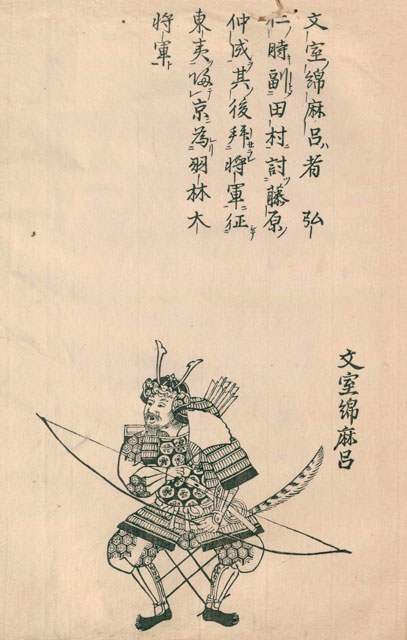 文室綿麻呂者弘
仁時副田村討藤原
仲成其後拜將軍征
東夷還京為羽林大
將軍
文室綿麻呂